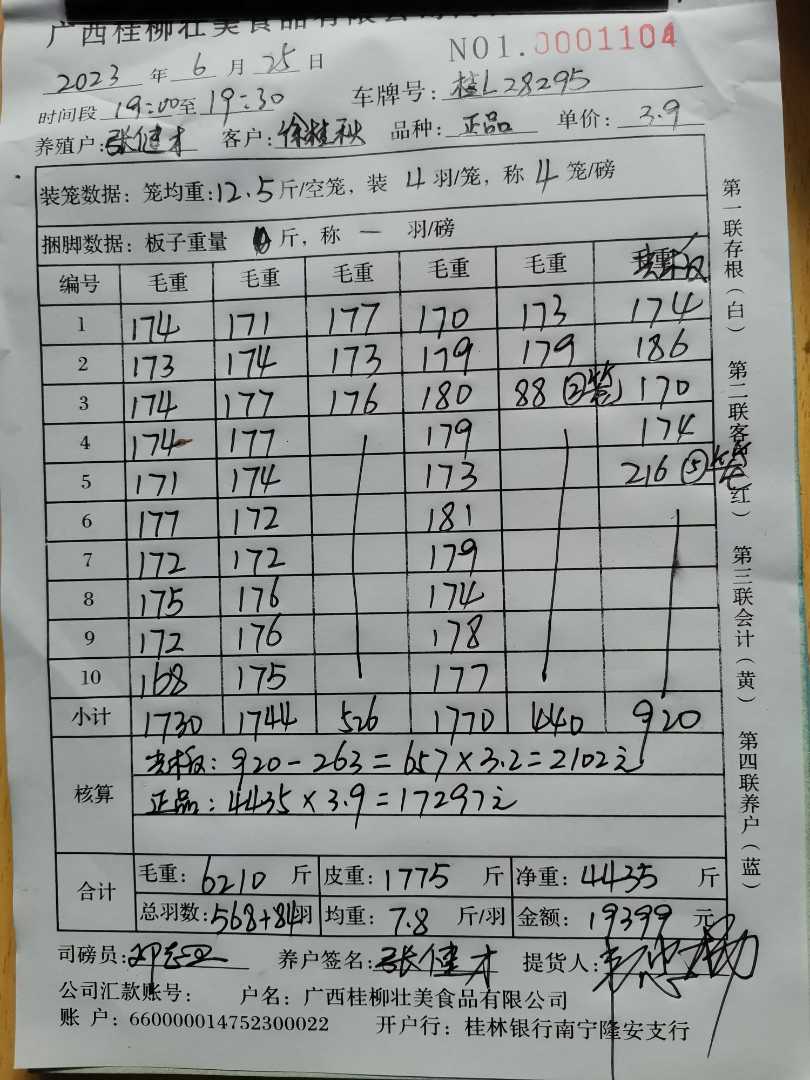 广西桂柳壮美食品有限公司
NO1.0001104
2023 年 6 月 25 日
时间段 19:00至 19:30 车牌号: 桂L28295
养殖户: 张健才 客户: 徐桂秋 品种: 正品 单价: 3.9
装笼数据: 笼均重: 12.5斤/空笼, 装 4 羽/笼, 称 4 笼/磅
捆脚数据: 板子重量 斤, 称 一 羽/磅
编号 毛重 毛重 毛重 毛重 毛重
1 174 171 177 170 173 174
2 173 174 173 179 179 186
3 174 177 176 180 88 ②笼 170
4 174 177 179 174
5 171 174 173 216 ⑤笼
6 177 172 181
7 172 172 179
8 175 176 174
9 172 176 178
10 168 175 177
小计 1730 1744 526 1770 440 920
核算
920-263=657×3.2=2102元
正品: 4435×3.9=17297元
合计
毛重: 6210 斤 皮重: 1775 斤 净重: 4435 斤
总羽数: 568+84羽 均重: 7.8 斤/羽 金额: 19399 元
司磅员: 养户签名: 张健才 提货人:
公司汇款账号: 户名: 广西桂柳壮美食品有限公司
账 户: 660000014752300022 开户行: 桂林银行南宁隆安支行
第一联存根(白) 第二联客 (红) 第三联会计(黄) 第四联养户(蓝)